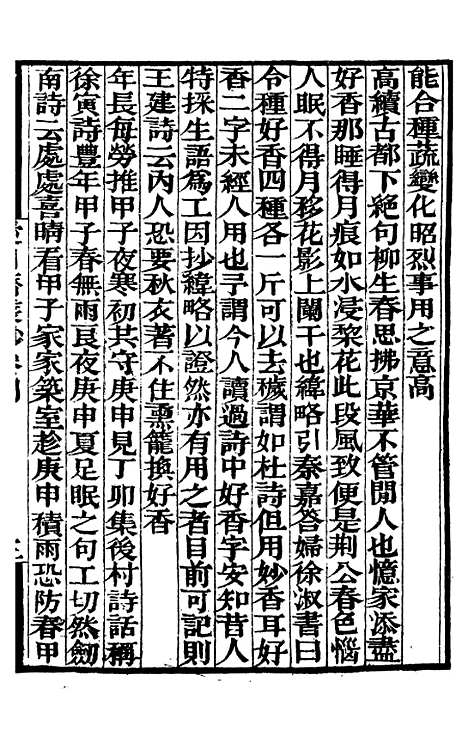 能合種蔬變化昭烈事用之意高
高續古都下絕句柳生春思拂京華不管閒人也憶家添盡
好香那睡得月痕如水浸棃花此段風致便是荆公春色惱
人眠不得月移花影上闌干也緯略引秦嘉答婦徐淑書曰
令種好香四種各一斤可以去穢謂如杜詩但用妙香耳好
香二字未經人用也予謂今人讀過詩中好香字安知昔人
特採生語爲工因抄緯略以證然亦有用之者目前可記則
王建詩云內人恐要秋衣著不住熏籠換好香
年長每勞推甲子夜寒初共守庚申見丁卯集後村詩話稱
徐寅詩豐年甲子春無雨良夜庚申夏足眠之句工切然劒
南詩云處處喜晴看甲子家家築室趁庚申積雨恐防春甲